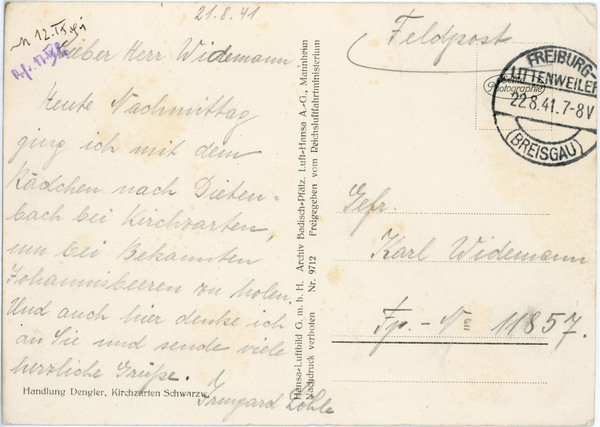 21.8.41
Lieber Herr Widemann
Heute Nachmittag
ging ich mit dem
Kädchen nach Dieten-
bach bei Kirchzarten,
um bei Bekannten
Johannisbeeren zu holen.
Und auch hier denke ich
an Sie und sende viele
herzliche Grüße.
Irmgard
Handlung Dengler, Kirchzarten Schwarzw.
Hansa-Luftbild G. m. b. H. Archiv Badisch-Pfälz. Luft-Hansa A.-G., Mannheim
Nachdruck verboten Nr. 9712 Freigegeben vom Reichsluftfahrtministerium
Feldpost
Echte
Photographie
FREIBURG-
LITTENWEILER
22.8.41.7-8V
(BREISGAU)
Gefr.
Karl Widemann
Fp.-Nº 11857.